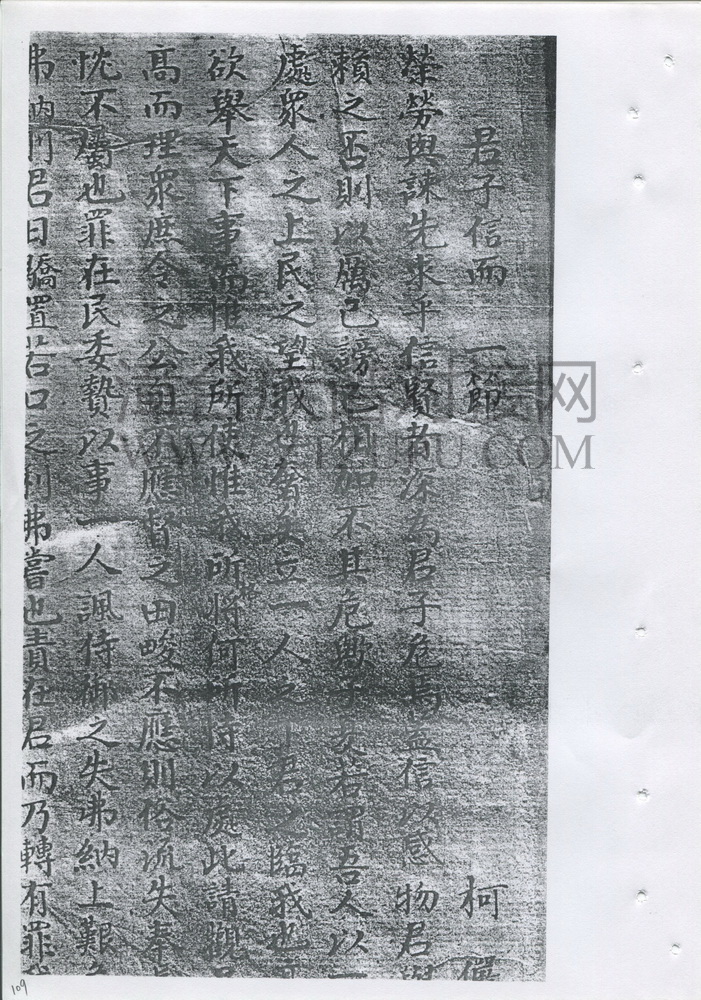 君子信而 一節 柯
榮勞與諫先求乎信賢者深為君子危焉蓋信以感物君
賴之否則以厲己謗己相加不其危歟子夏若謂吾人以一
處衆人之上民之望我也奮矣立一人之下君之臨我也
欲舉天下事而惟我所使惟我所將何所恃以處此請觀
高而理衆庶令之公旬不應督之田畯不應則俗流失奉
忱不屬也罪在民委贄以事一人諷侍御之失弗納上艱
弗納則君曰驕置若口之利弗嘗也責在君而乃轉有罪
WWW.COM
109